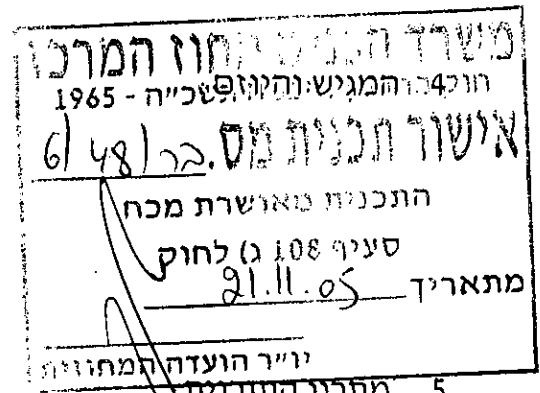 משרד הפנים מחוז המרכז
חוק המגיש והיוזם תשכ"ה - 1965
אישור תכנית מס. בר/48/6
התכנית מאושרת מכח
סעיף 108 ג) לחוק
מתאריך 21.11.05
יו"ר הועדה המחוזית
5